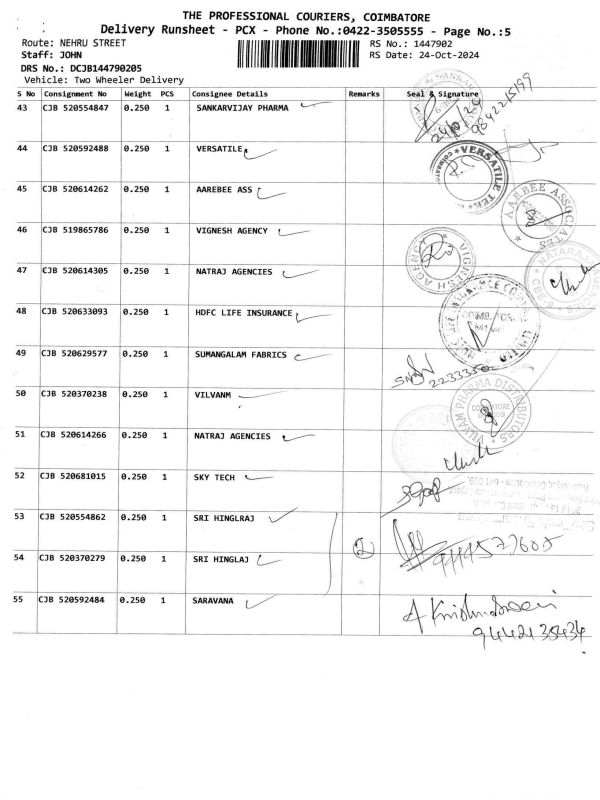 THE PROFESSIONAL COURIERS, COIMBATORE
Delivery Runsheet - PCX - Phone No.:0422-3505555 - Page No.:5
Route: NEHRU STREET
RS No.: 1447902
Staff: JOHN
RS Date: 24-Oct-2024
DRS No.: DCJB144790205
Vehicle: Two Wheeler Delivery
S No Consignment No Weight PCS Consignee Details Remarks Seal & Signature
43 CJB 520554847 0.250 1 SANKARVIJAY PHARMA
9842215199
44 CJB 520592488 0.250 1 VERSATILE
VERSATILE
45 CJB 520614262 0.250 1 AAREBEE ASS
AARBEE ASSOCIATES
46 CJB 519865786 0.250 1 VIGNESH AGENCY
VIGNESH AGENCY
47 CJB 520614305 0.250 1 NATRAJ AGENCIES
CBE-9
48 CJB 520633093 0.250 1 HDFC LIFE INSURANCE
49 CJB 520629577 0.250 1 SUMANGALAM FABRICS
2233350
50 CJB 520370238 0.250 1 VILVANM
PHARMA DISTRIBUTORS
51 CJB 520614266 0.250 1 NATRAJ AGENCIES
52 CJB 520681015 0.250 1 SKY TECH
53 CJB 520554862 0.250 1 SRI HINGLRAJ
2
54 CJB 520370279 0.250 1 SRI HINGLAJ
55 CJB 520592484 0.250 1 SARAVANA
9442135434